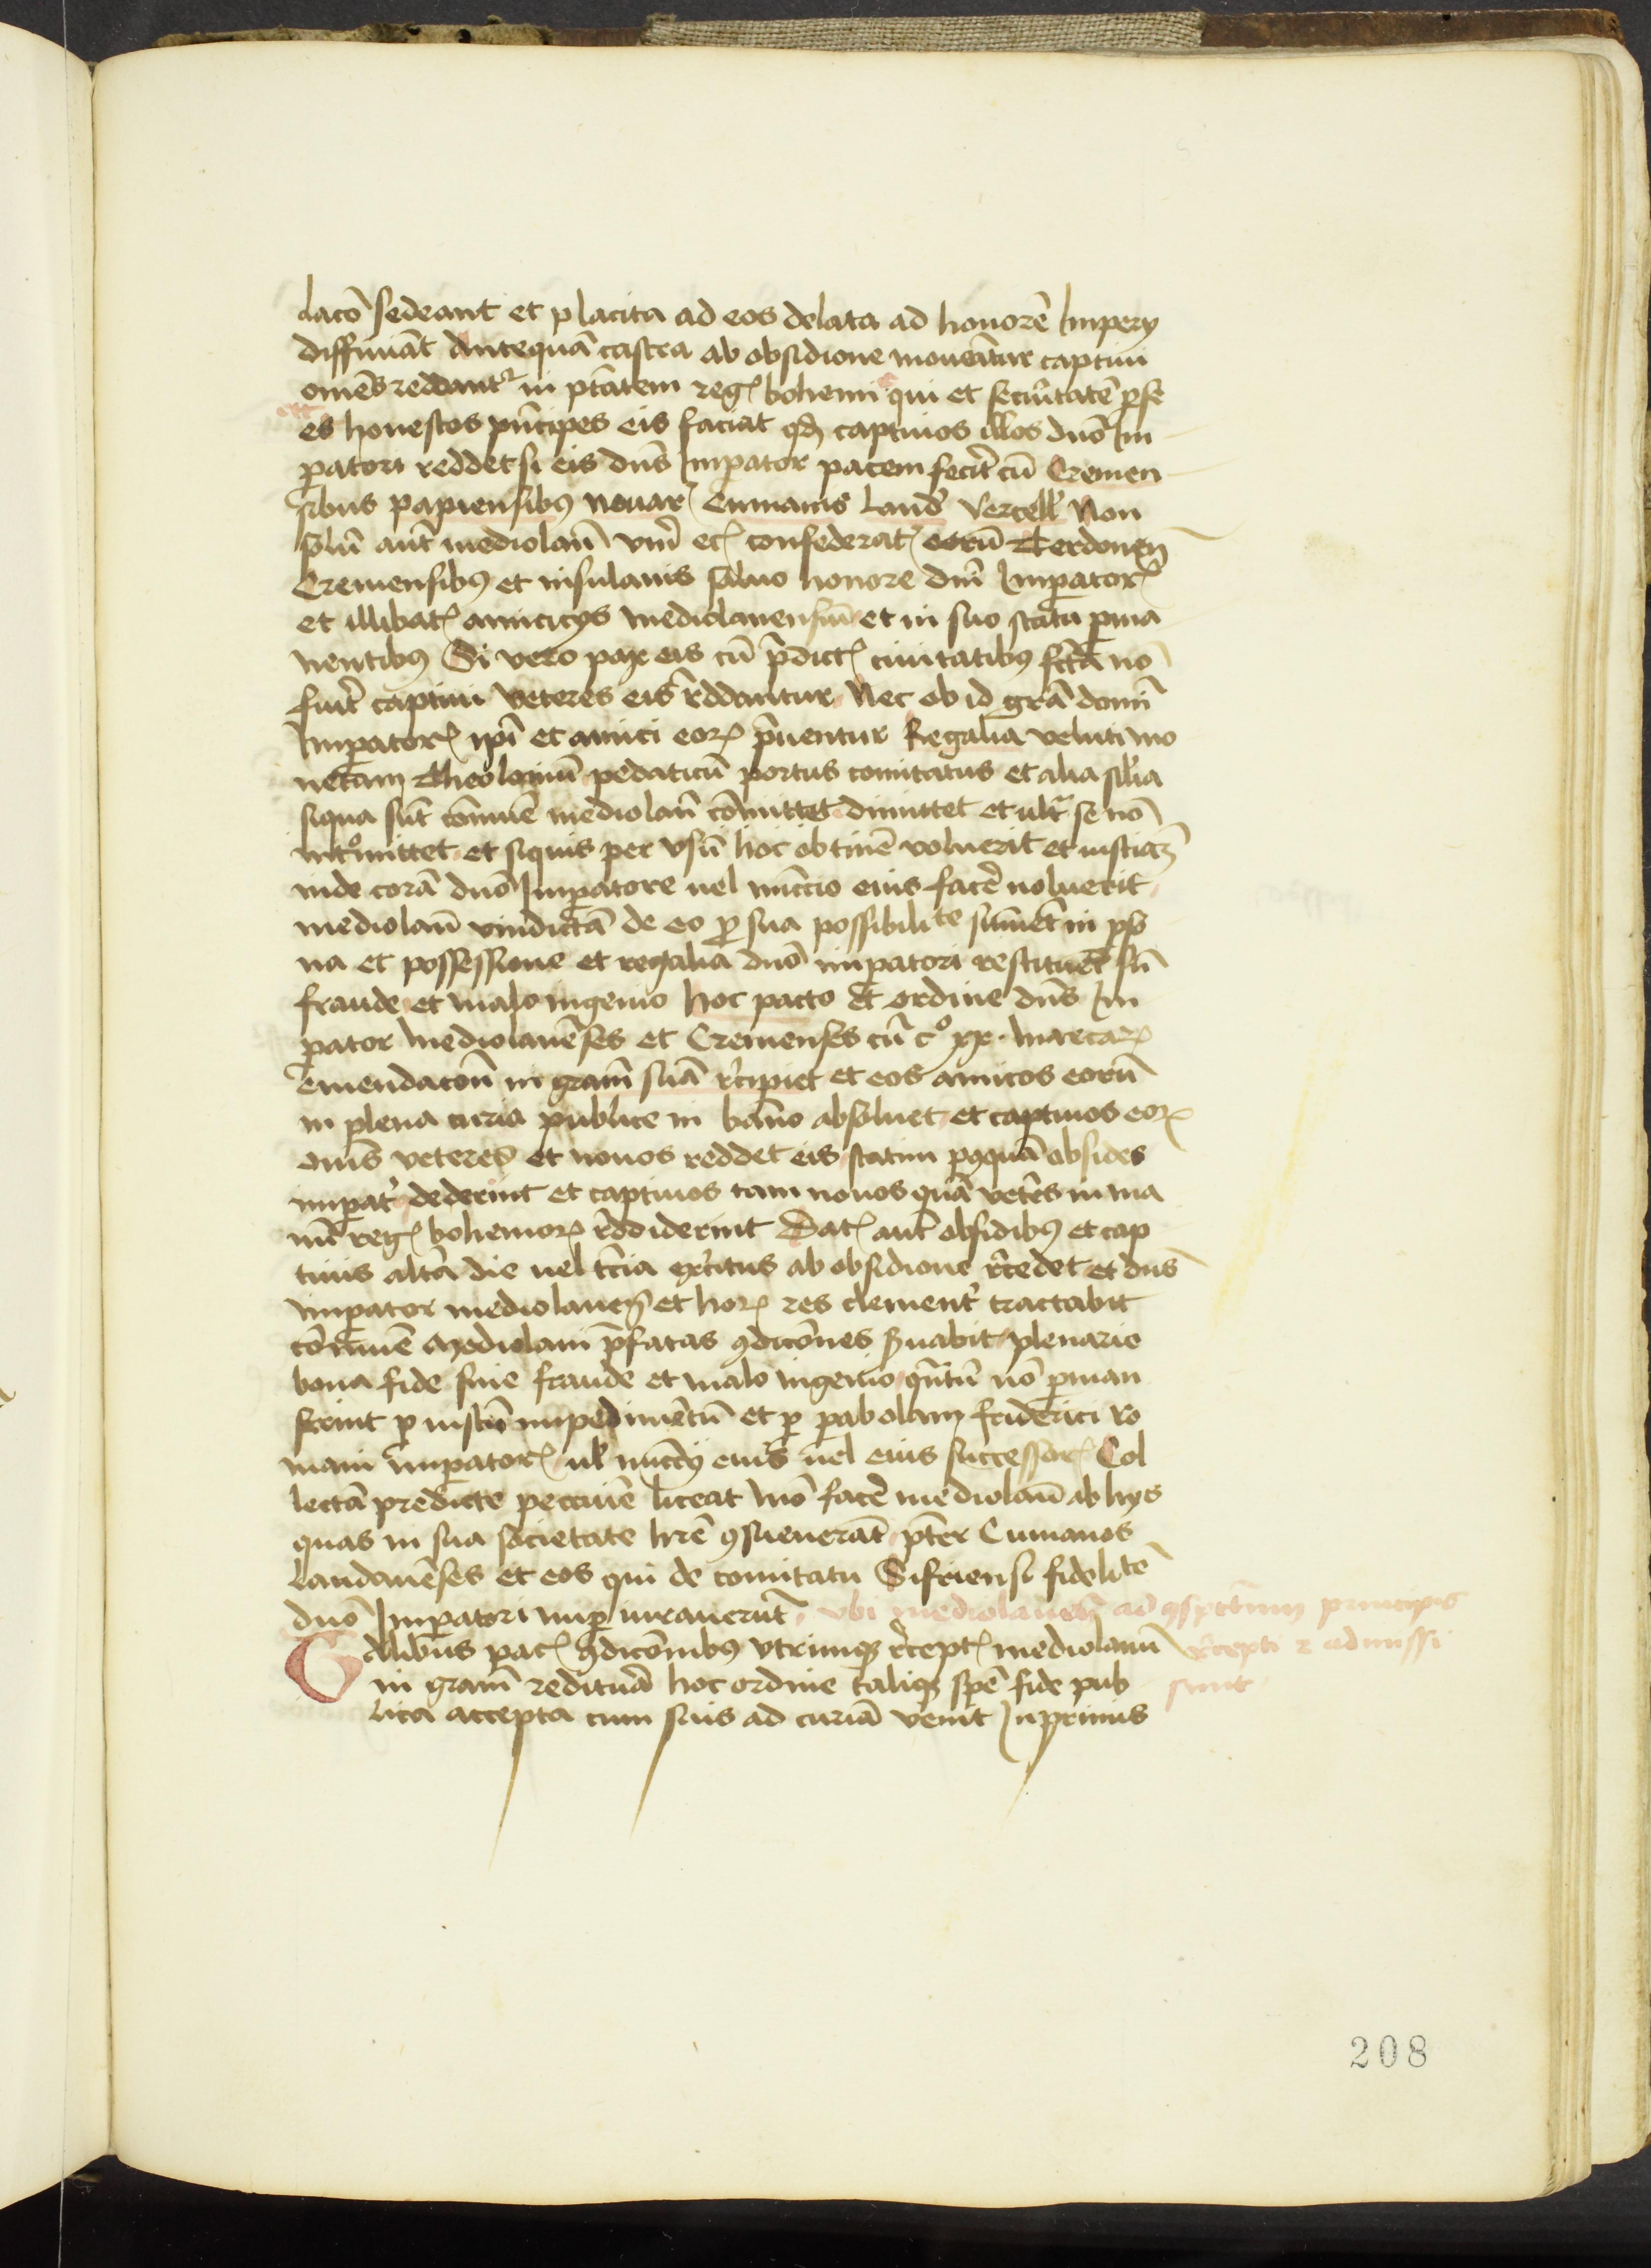 lacō sedeant et placita ad eos delata ad honorē Impery
diffiniāt Antequā castra ab obsidione moveātur captiui
omēs reddantʳ in ptātem regꝭ bohemi qui et securitatē ꝑ se
es honestos pncipes eis faciat qd captiuos illos dnō Im
peratori reddet si eis dns Impator pacem fecit cū Cremen
sibus papiensibꝫ nouarꝭ Cumanis laud Vercell Non
solū aut mediolanꝭ vm̄ etꝭ confederatꝭ eorū Terdonenꝭ
Cremensibꝫ et insulanis saluo honore dni Impatorꝭ
et illibatꝭ amicicys mediolanensiū et in suo statu ꝑma
nentibꝫ Si vero pax eis cū pdictꝭ ciuitatibꝫ fctā nō
fuit captiui veteres eis rddantur Nec ob id grā domī
Impatorꝭ ipi et amici eorꝝ pūentur Regalia veluti mo
netam Theoloniū pedaticū portus comitatus et alia silia
siqua sūt cōmune mediolanꝭ cōmittet dimittet et ultʳ se nō
intʳomittet et siquis per vsū hoc obtinē voluerit et iusticiaꝫ
inde corā dnō Impatore uel nunccio eius facē noluerit
mediolanꝭ vindictā de eo ꝓ sua possibilite sumet in pso
na et possessione et regalia dnō impatori restituēt sn
fraude et malo ingenio hoc pacto et ordine dns Im
pator mediolanēses et Cremenses cū cº xx. marcarꝝ
emendacōn in gram suā rcipiet et eos amicos eorū
in plena curia publice in banno absoluet et captiuos eorꝝ
omīs veteres et nouos reddet eis statim pꝯquā obsides
impatꝰ dederint et captiuos tam nouos quā vetes in ma
nū regꝭ bohemorꝝ rddiderint Datꝭ aut obsidibꝫ et cap
tiuis altā die uel tcia excitus ab obsidione rcedet et dns
impator mediolanenꝭ et horꝝ res clementʳ tractabit
cōmune Mediolani pfatas ꝯdicōnes suabit plenarie
bona fide sine fraude et malo ingenio qntū nō ꝑman
serint ꝑ iustū impedimētū et ꝑ pabolam friderici Ro
mani impatorꝭ ul nuncy eius uel eius successorꝭ Col
lectā predicte peccunie liceat mō facē mediolanꝭ ab hys
quas in sua societate hrē ꝯsueuerāt pter Cumanos
laudauēses et eos qui de comitatu Sifriensi fidelitē
dnō Impatori nuꝑ iurauerūt vbi mediolanenꝭ ad ꝯspctum principis
Talibus pacꝭ ꝯdicōnibus vtrimqꝫ rceptꝭ mediolanū rcepti ⁊ admissi
in gram redituā hoc ordine taliqꝫ spē fide pub sunt
lica accepta cum suis ad curiā venit Inprimis
208